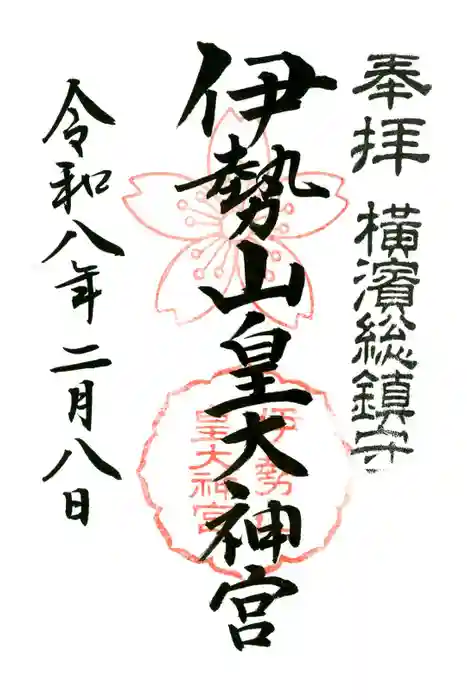 奉拝
横濱総鎮守
伊勢山皇大神宮
伊勢山
皇大神宮
令和八年二月八日